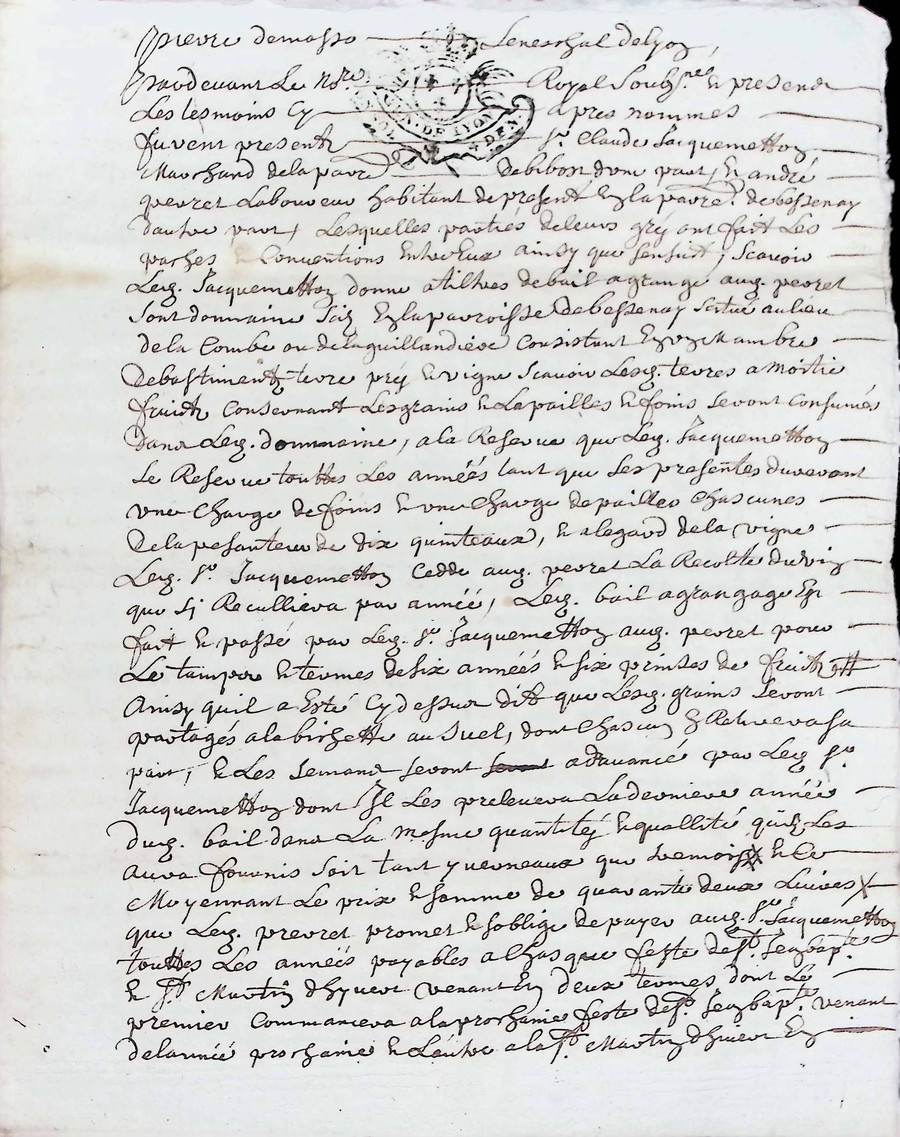 pierre demasso Seneschal de Lyon,
Pardevant Le No.re Royal Soub.nes E presens
Les tesmoins Cy apres nommes
fuvent presentz Sr. Claude Jacquemetton
Marchand de la parr.e De bibost dune part, E andré
pevret Laboureur habitant de present En la parr.e de bessenay
dautre part, Lesquelles parties de leurs gré ont fait Les
paches E Conventions Entre Eux ainsy que sensuit, scavoir
Led. Jacquemetton donne a tiltres de bail a grange aud. pevret
sont dommaine En la parroisse De bessenay scitué au lieu
de la Combe ou de la guillandiere Consistant En Membre
De bastimentz terre pré E vigne scavoir Lesd. terres a moitie
fruictz Consernant Les grains E Les pailles E foins seront Consumés
Dans Led. dommaine, a la Reserve que Led. Jacquemetton
se Reserve touttes Les années tant que Ses presentes dureront
une Charge de foins E une Charge de pailles Chascunes
De la pesanteur de dix quinteaux, E a legard de la vigne
Led. Sr. Jacquemetton Cedde aud. pevret La Recolte du vin
que sy Recullira par année, Led. bail a grangage En
fait E passé par Led. Sr. Jacquemetton aud. pevret pour
Le tamps E termes de six années E six prinses de fruictz
Ainsy quil a Esté Cy dessus dit que Lesd. grains seront
partagés a la bichette au Suel, dont Chascun En Retirera sa
part, E Les semans seront adavancé par Led. Sr.
Jacquemetton dont Il Les prelevera La derniere année
dud. bail dans La mesme quantité E quallité quil Les
aura fournis soit tant yverneaux que tremois E Ce
Moyennant Le prix E somme de quarante deux Livres
que Led. prevret promet E soblige de payer aud. Sr. Jacquemetton
touttes Les années payables a Chasque feste de St. Jean bap.te
E St. Martin dhyvert venant En deux termes dont Le
premier Commancera a la prochaine feste de St. Jean bap.te venant
de lannée prochaine E Lautre a la St. Martin dhivert En